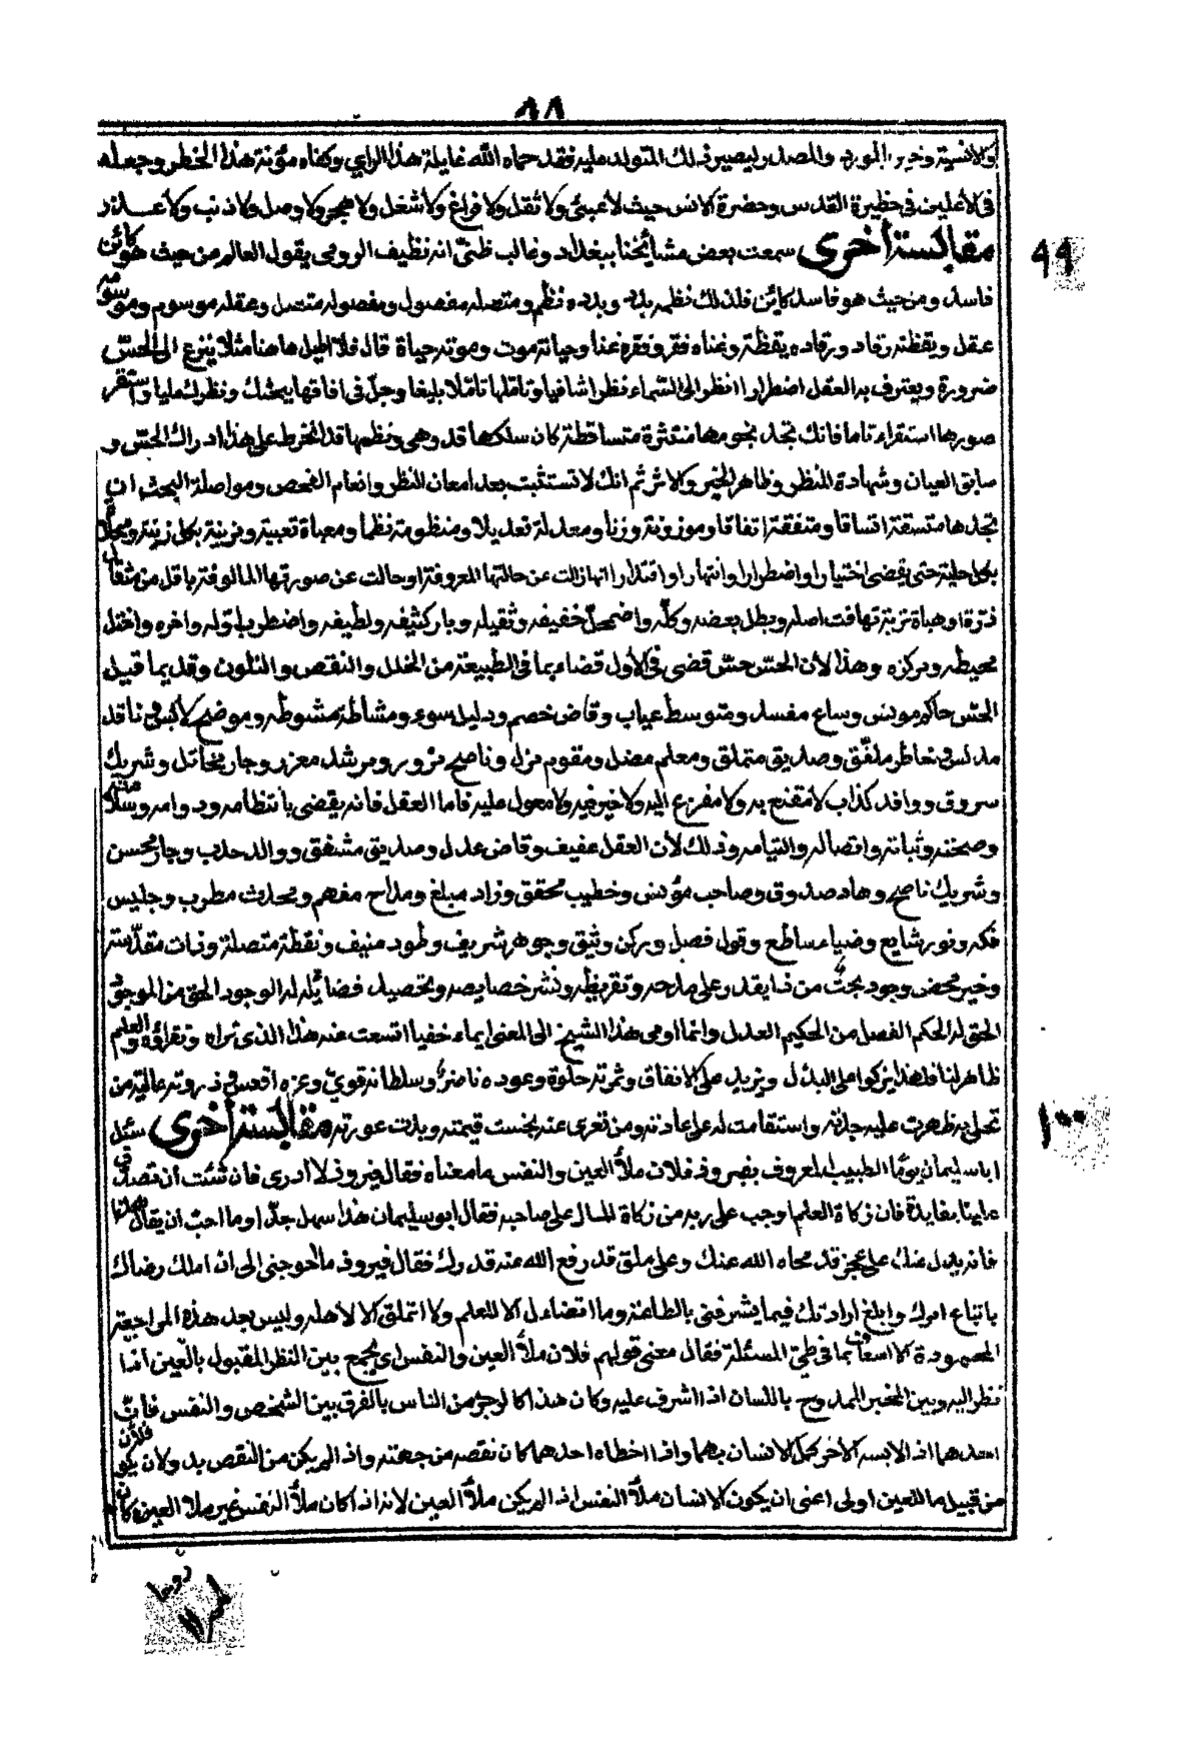 ٩٨
والانسية وخير المورد والمصدر ليصير ذلك المتولد عليه فقد حماه الله غايلة هذا الراي وكفاه مؤنة هذا الخطر وجعله
في الأعلين في حظيرة القدس وحضرة الانس حيث لا عبئ ولا ثقل ولا فراغ ولا شغل ولا هجر ولا وصل ولا ذنب ولا عذر
مقابسة أخرى سمعت بعض مشائخنا ببغداد وغالب ظنّي انه نظيف الرومي يقول العالم من حيث هو كائن
٩٩
فاسد ومن حيث هو فاسد كائن فلذلك نظمه بدد وبدده نظم ومتصله مفصول ومفصوله متصل وعقله موسوم وموسومه
عقل ويقظته رقاد ورقاده يقظة وغناه فقر وفقره غنا وحياته موت وموته حياة قال فلا الميل هاهنا مثلا ينزع الى الحسّ
ضرورة ويعترف به العقل اضطرارا انظر الى السماء نظرا شافيا وتاملها تاملا بليغا وجلّ في افاقها ببحثك ونظرك مليا واستقر
صورها استقراء تاما فانك تجد نجومها منتثرة متساقطة كان سلكها قد وهى ونظمها قد انخرط على هذا ادراك الحسّ و
سابق العيان وشهادة النظر وظاهر الخبر والاثر ثم انك لا تستثبت بعد امعان النظر وانعام الفحص ومواصلة البحث ان
تجدها متسقة اتساقا ومتفقة اتفاقا وموزونة وزنا ومعدلة تعديلا ومنظومة نظما ومعباة تعبية ومزينة بكل زينة ومحلاة
بكل حلية حتى يقضى اختيارا واضطرارا وانتهارا واقتدارا انها زالت عن حالتها المعروفة او حالت عن صورتها المالوفة باقل من مثقال
ذرة او هباة تربة تهافت اصله وبطل بعضه وكلّه واضمحلّ خفيفه وثقيله وبار كثيفه ولطيفه واضطرب اوّله واخره واختل
محيطه ومركزه وهذا لأن الحسّ حسّ قضى في الأول قضاء بما في الطبيعة من الخلل والنقص والتلون وقديما قيل
الحسّ حاكم مؤنس وساع مفسد ومتوسط عياب وقاض خصم ودليل سوء ومشاطة مشوطة وموضح لابس وناقد
مدلس وخاطر ملفّق وصديق متملق ومعلم مضل ومقوم مزل وناصح مزور ومرشد معزر وجار مخاتل وشريك
سروق ووافد كذاب لا مقنع به ولا مفزع اليه ولا خير فيه ولا معول عليه فاما العقل فانه يقضى بانتظامه ودوامه وسلامته
وصحته وثباته واتصاله والتيامه وذلك لأن العقل عفيف وقاض عدل وصديق مشفق ووالد حدب وجار محسن
وشريك ناصح وهاد صدوق وصاحب مؤنس وخطيب محقق وزاد مبلغ وملاح مفهم ومحدث مطرب وجليس
فكه ونور شايع وضياء ساطع وقول فصل وركن وثيق وجوهر شريف وطود منيف ونقطة متصلة وذات مقدّسة
وخير محض وجود بحت من ذا يقدر على مدحه وتقريظه ونشر خصايصه وتحصيل فضائله له الوجود الحق من الموجود
الحق له الحكم الفصل من الحكيم العدل وانما اومى هذا الشيخ الى المعنى ايماء خفيا اتسعت عنه هذا الذى تراه وتقراؤه والعلم
ظاهر لنا فلهذا يزكوا على البذل ويزيد على الانفاق وثمرته حلوة وعوده ناضر وسلطانه قويّ وعزه اقعس وذروته عالية من
تحلى به ظهرت عليه جلالته واستقامت له على عادته ومن تعرى عنه بخست قيمته وبدت عورته مقابسة أخرى سئل
١٠٠
ابا سليمان يومًا الطبيب المعروف بفيروذ فلان ملأ العين والنفس ما معناه فقال فيروذ لا ادرى فان شئت أن تصدق
علينا بفايدة فان زكاة العلم اوجب على ربه من زكاة المال على صاحبه فقال ابو سليمان هذا سهل جدّا وما احبّ ان يقال هذا
فانه يدل عنك على عجز قد محاه الله عنك وعلى ملق قد رفع الله عنه قدرك فقال فيروذ ما احوجنى الى ان املك رضاك
باتباع امرك وابلغ ارادتك فيما يشرفنى بالطاعة وما اتضاءل الا للعلم ولا اتملق الا لاهله وليس بعد هذه المراجعة
المحمودة الا اسعافنا بما في طيّ المسئلة فقال معنى قولهم فلان ملأ العين والنفس اى يجمع بين النظر المقبول بالعين اذا
نظر اليه وبين المخبر الممدوح باللسان اذا اشرف عليه وكان هذا كالوجه من الناس بالفرق بين الشخص والنفس فانّ
احدهما اذا لابسه الاخر كمل الانسان بهما واذا اخطاه احدهما كان نقصه من جهته واذا لم يكن من النقص بد ولان يكون فلان
من قبيل ما للعين اولى اعنى ان يكون الانسان ملأ النفس اذا لم يكن ملأ العين لانه اذا كان ملأ النفس غير ملأ العين كان